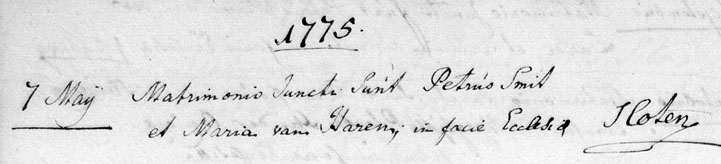 1775.
7 Maÿ Matrimonio Juncti Sunt Petrus Smit
et Maria van Haren, in facie Ecclesiæ